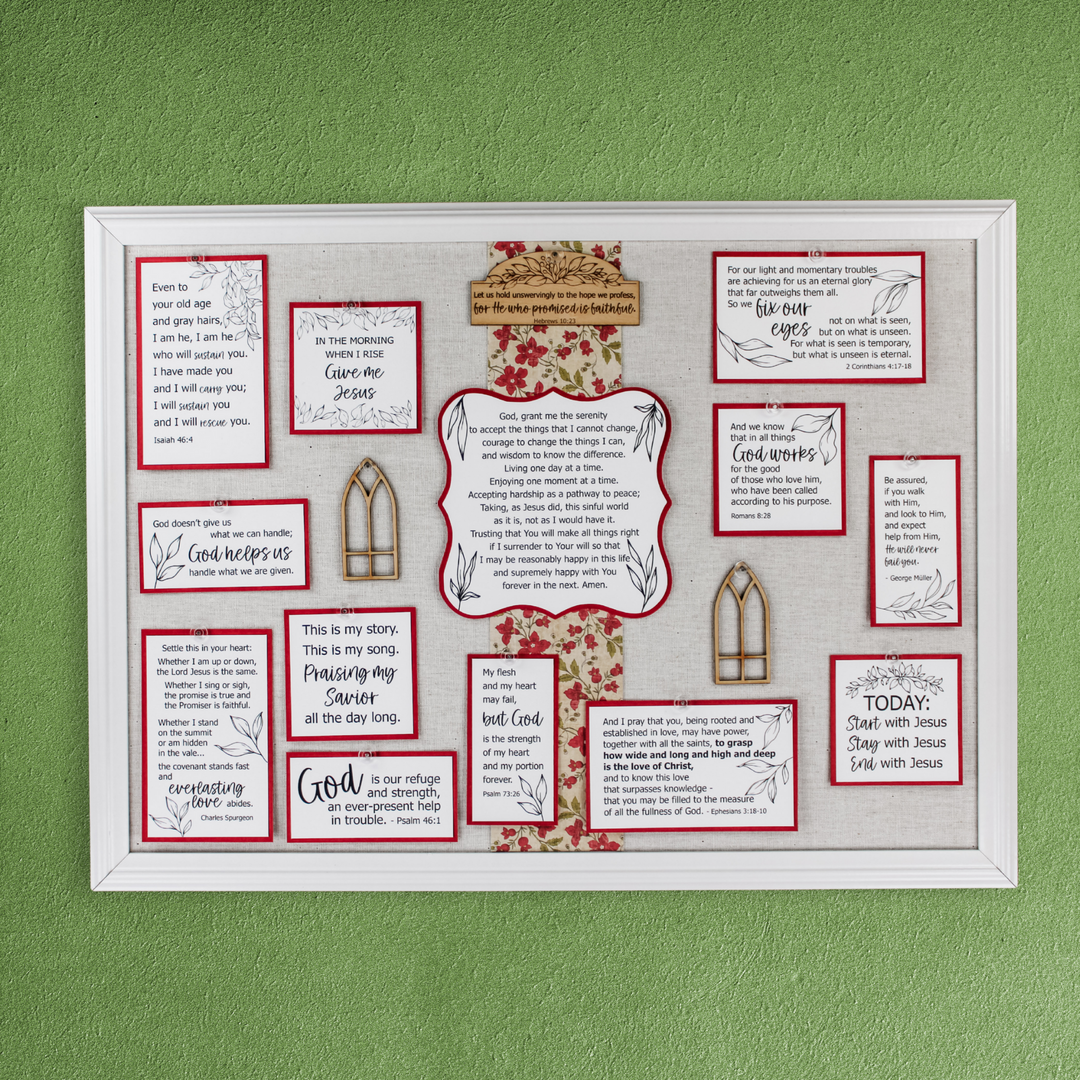 Even to
your old age
and gray hairs,
I am he, I am he
who will sustain you.
I have made you
and I will carry you;
I will sustain you
and I will rescue you.
Isaiah 46:4
IN THE MORNING
WHEN I RISE
Give me
Jesus
God doesn't give us
what we can handle;
God helps us
handle what we are given.
Settle this in your heart:
Whether I am up or down,
the Lord Jesus is the same.
Whether I sing or sigh,
the promise is true and
the Promiser is faithful.
Whether I stand
on the summit
or am hidden
in the vale...
the covenant stands fast
and
everlasting
love abides.
Charles Spurgeon
This is my story.
This is my song.
Praising my
Savior
all the day long.
God is our refuge
and strength,
an ever-present help
in trouble. - Psalm 46:1
Let us hold unswervingly to the hope we profess,
for He who promised is faithful.
Hebrews 10:23
God, grant me the serenity
to accept the things that I cannot change,
courage to change the things I can,
and wisdom to know the difference.
Living one day at a time.
Enjoying one moment at a time.
Accepting hardship as a pathway to peace;
Taking, as Jesus did, this sinful world
as it is, not as I would have it.
Trusting that You will make all things right
if I surrender to Your will so that
I may be reasonably happy in this life
and supremely happy with You
forever in the next. Amen.
My flesh
and my heart
may fail,
but God
is the strength
of my heart
and my portion
forever.
Psalm 73:26
And I pray that you, being rooted and
established in love, may have power,
together with all the saints, to grasp
how wide and long and high and deep
is the love of Christ,
and to know this love
that surpasses knowledge -
that you may be filled to the measure
of all the fullness of God. - Ephesians 3:18-10
For our light and momentary troubles
are achieving for us an eternal glory
that far outweighs them all.
So we fix our
eyes not on what is seen,
but on what is unseen.
For what is seen is temporary,
but what is unseen is eternal.
2 Corinthians 4:17-18
And we know
that in all things
God works
for the good
of those who love him,
who have been called
according to his purpose.
Romans 8:28
Be assured,
if you walk
with Him,
and look to Him,
and expect
help from Him,
He will never
fail you.
- George Müller
TODAY:
Start with Jesus
Stay with Jesus
End with Jesus